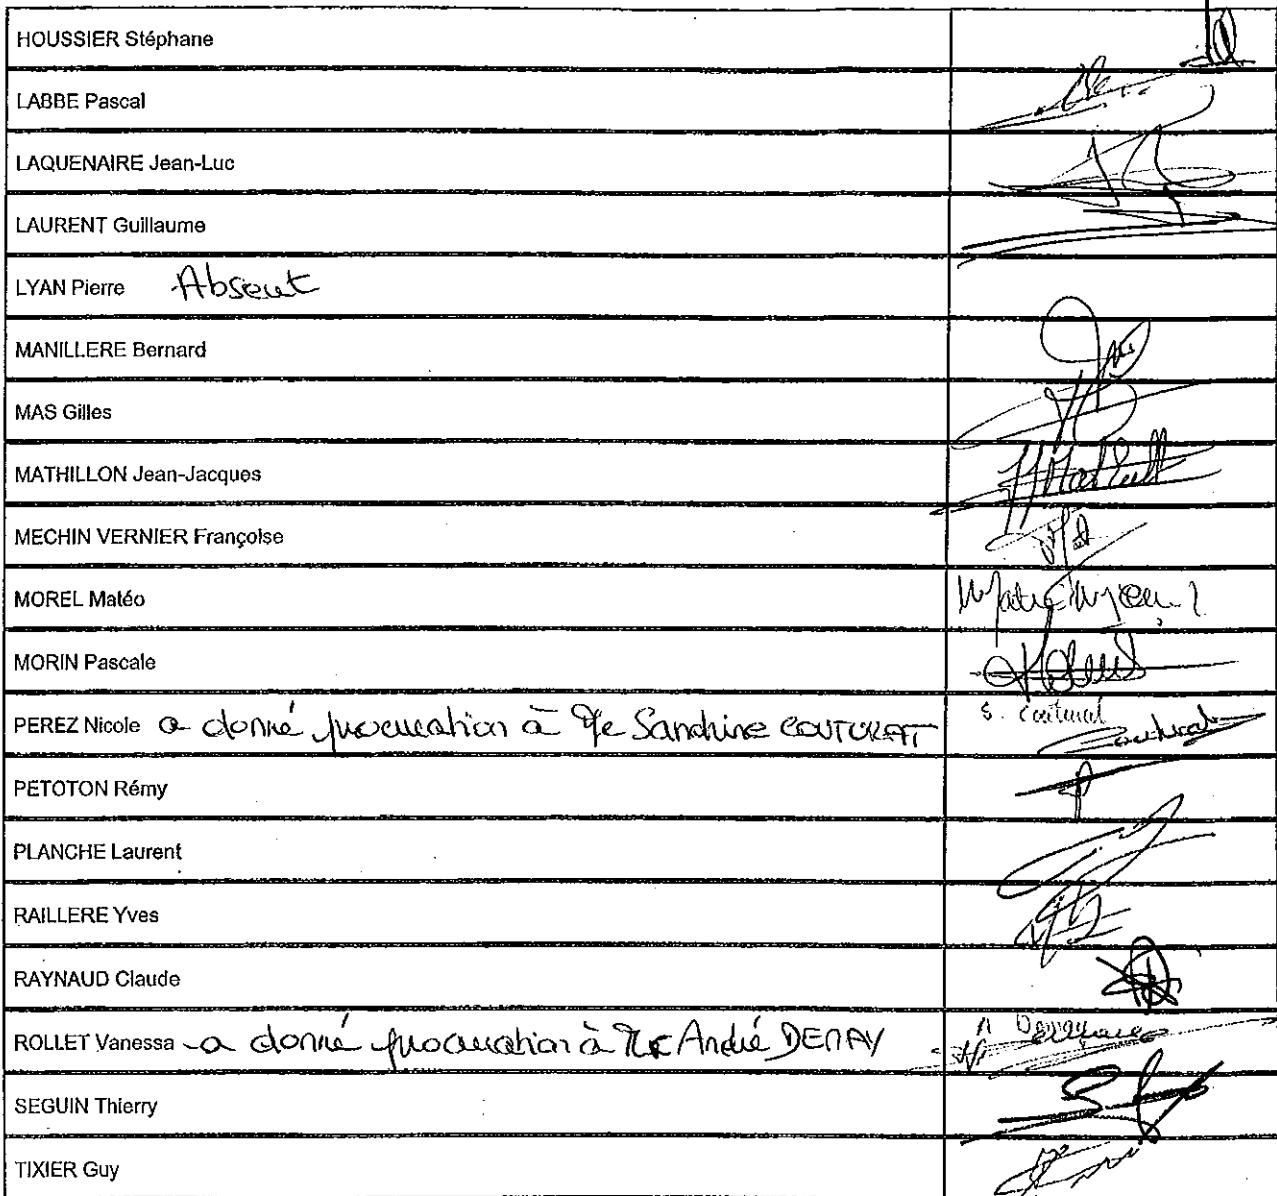 HOUSSIER Stéphane
LABBE Pascal
LAQUENAIRE Jean-Luc
LAURENT Guillaume
LYAN Pierre Absent
MANILLERE Bernard
MAS Gilles
MATHILLON Jean-Jacques
MECHIN VERNIER Françoise
MOREL Matéo
MORIN Pascale
PEREZ Nicole a donné procuration à Me Sandrine COUTURAT S. Couturat
PETOTON Rémy
PLANCHE Laurent
RAILLERE Yves
RAYNAUD Claude
ROLLET Vanessa a donné procuration à Mr André DEMAY
SEGUIN Thierry
TIXIER Guy